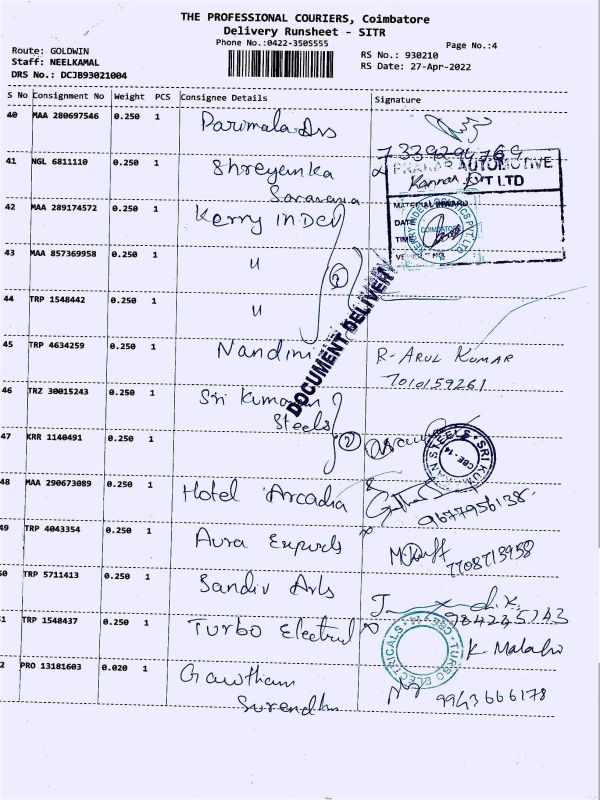 THE PROFESSIONAL COURIERS, Coimbatore
Delivery Runsheet - SITR
Phone No.:0422-3505555
Page No.:4
Route: GOLDWIN
Staff: NEELKAMAL
DRS No.: DCJB93021004
RS No.: 930210
RS Date: 27-Apr-2022
S No Consignment No Weight PCS Consignee Details Signature
40 MAA 280697546 0.250 1 Parimala
7339294769
41 NGL 6811110 0.250 1 Shreyanka
Saravana
AUTOMOTIVE
PVT LTD
42 MAA 289174572 0.250 1 Kerry INDEV
MATERIAL INWARD
DATE
TIME
COIMBATORE
43 MAA 857369958 0.250 1 "
44 TRP 1548442 0.250 1 "
DOCUMENT DELIVERY
45 TRP 4634259 0.250 1 Nandini R- ARUL KUMAR
7010159261
46 TRZ 30015243 0.250 1 Sri Kumaran
Steels
2
47 KRR 1140491 0.250 1
STEELS * SRI KUM
CBE - 14
48 MAA 290673089 0.250 1 Hotel Arcadia
9677956138
49 TRP 4043354 0.250 1 Aura Exports
7708713958
50 TRP 5711413 0.250 1 Sandiv Arts
51 TRP 1548437 0.250 1 Turbo Electrical
TURBO ELECTRICALS
K. Malathi
2 PRO 13181603 0.020 1 Gowtham
Surendhr
9943666178